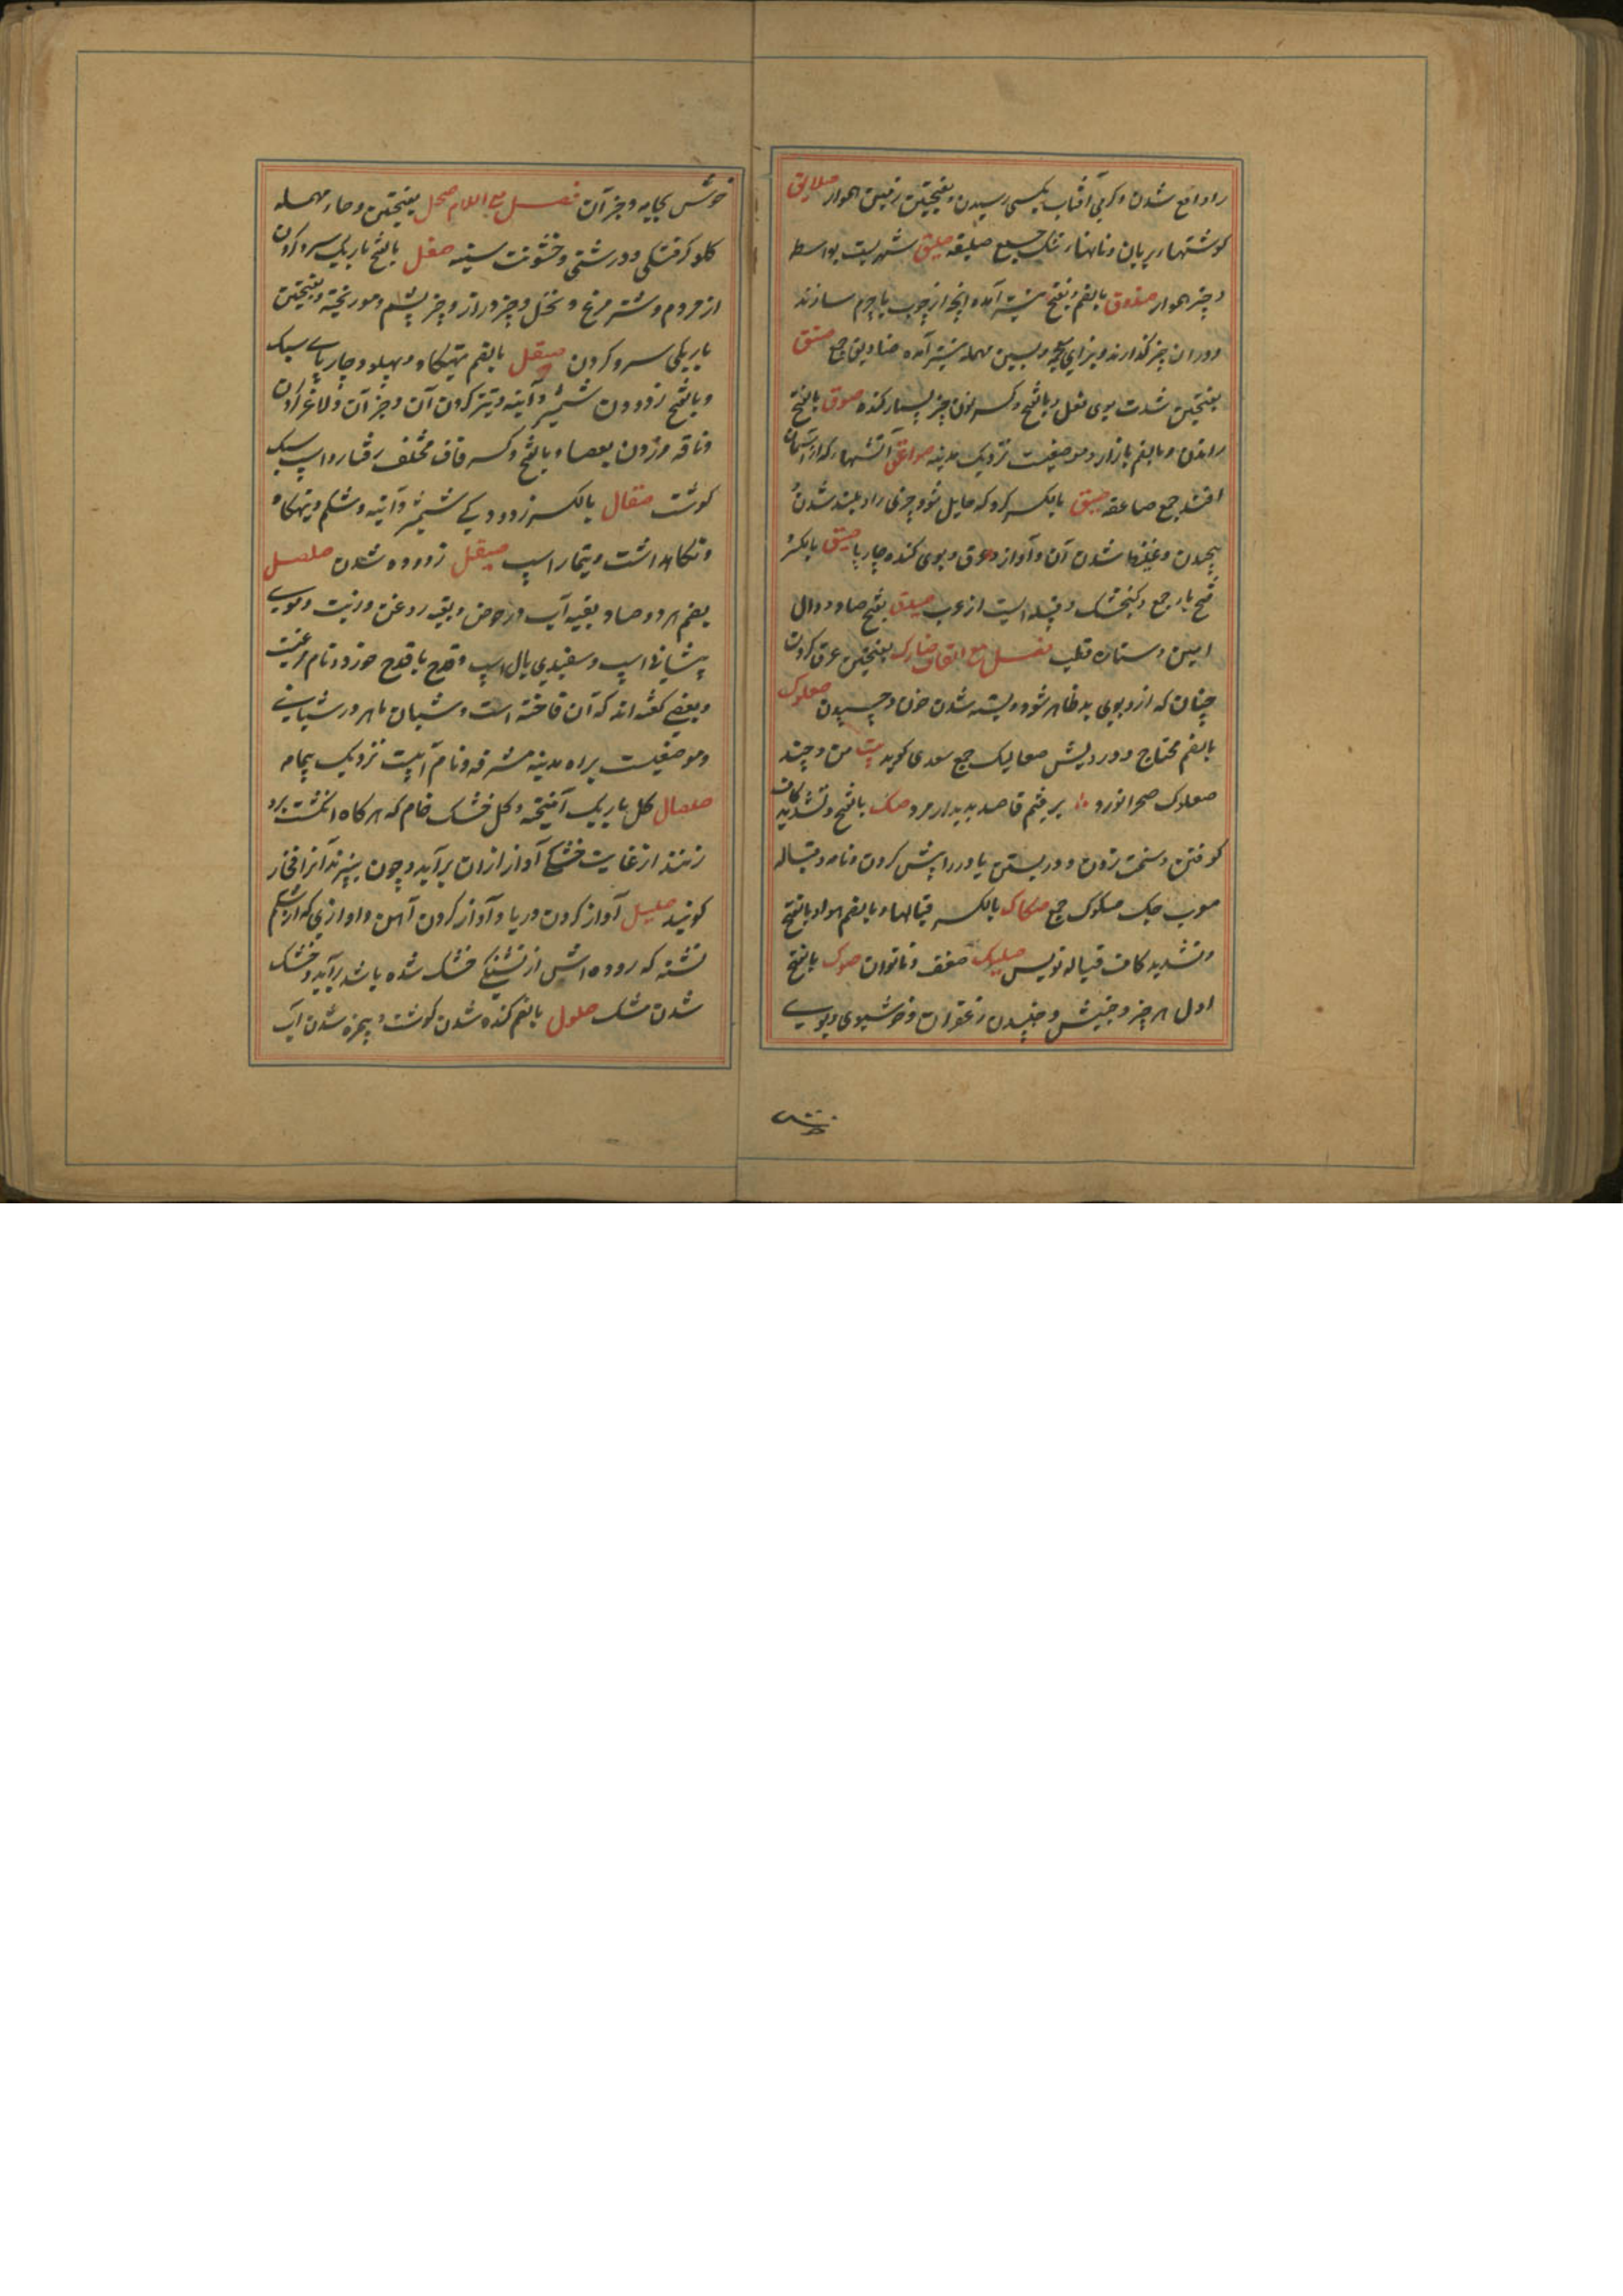 را واقع شدن و کرمی آفتاب بکسی رسیدن و بفتحتین زمین هموار صلایق
کوشتهاء بریان و نانهاء تنک جمع صلیقه صلیق شهریست بواسط
و چیز هموار صندوق بالضم و بفتح نیز آمده انچه از چوب یا چرم سازند
و در ان چیز گذارند و بزای معجمه و بسین مهمله نیز آمده صنادیق جمع صنق
بفتحتین شدت بوی بغل و بالفتح و کسر نون چیز بسیار کنده صوق بالفتح
راندن و بالضم بازار و موضعیست نزدیک مدینه صواعق آتشهاء که از آسمان
افتد جمع صاعقه صیق بالکسر کرد که حایل شود چیزی را و بلند شدن
پیچیدن و غلیظ شدن آن و آواز و عرق و بوی کنده چارپا صیق بالکسر و
فتح یا جمع و کنجشک و قبیله ایست از عرب صیدق بفتح صاد و دال
امین و ستاره قطب فصل مع الکاف صارک بفتحتین عرق کردن
چنان که ازو بوی بد ظاهر شود و بسته شدن خون و چسپیدن صعلوک
بالضم محتاج و درویش صعالیک جمع سعدی کوید بیت من و چند
صعلوک صحرا نورد برفتیم قاصد بدیدار مرد صک بالفتح و تشدید کاف
کوفتن و سخت زدن و در بستن یا در را پیش کردن و نامه و قباله
معرب چک صکوک جمع صکاک بالکسر قبالها و بالضم هوا و بالفتح
و تشدید کاف قباله نویس صلیک ضعف و ناتوان صوک بالفتح
اول هر چیز و جنبش و جنبیدن زعفران و خوشبوی و بوی
خوش
خوش بجامه و جز آن فصل مع اللام صحل بفتحتین و حاء مهمله
کلو کرفتکی و درشتی و خشونت سینه صعل بالفتح باریک سر و کردن
از مردم و شتر مرغ و نخل و چیز دراز و خر پشم و موریخته و بفتحتین
باریکی سر و کردن صقل بالضم تهیکاه و پهلو و چارپاے سبک
و بالفتح زدودن شمشیر و آینه و تیز کردن آن و جز آن و لاغر کردن
و ناقه و زدن بعصا و بالفتح و کسر قاف مختلف رفتار و اسپ سبک
کوشت صقال بالکسر زدودکے شمشیر و آینه و شکم و تهیکاه
و نکاهداشت و تیمار اسپ صیقل زدوده شدن صلصل
بضم هر دو صاد بقیه آب در حوض و بقیه روغن و زیت و موے
پیشانی اسپ و سفیدی یال اسپ و قدح یا قدح خورد و نام مرغیست
و بعضے کفته اند که آن فاخته است و شبان ماهر در شبانے
و موضعیست براه مدینه مشرفه و نام آبیست نزدیک یمامه
صلصال کل باریک آمیخته و کل خشک خام که هر کاه انکشت برو
زنند از غایت خشکے آواز ازان برآید و چون بپزند آنرا فخار
کویند صلیل آواز کردن دریا و آواز کردن آهن و اوازی که از شکم
تشنه که روده اش از تشنکے خشک شده باشد برآید و خشک
شدن مشک صلول بالضم کنده شدن کوشت و بیمزه شدن آب